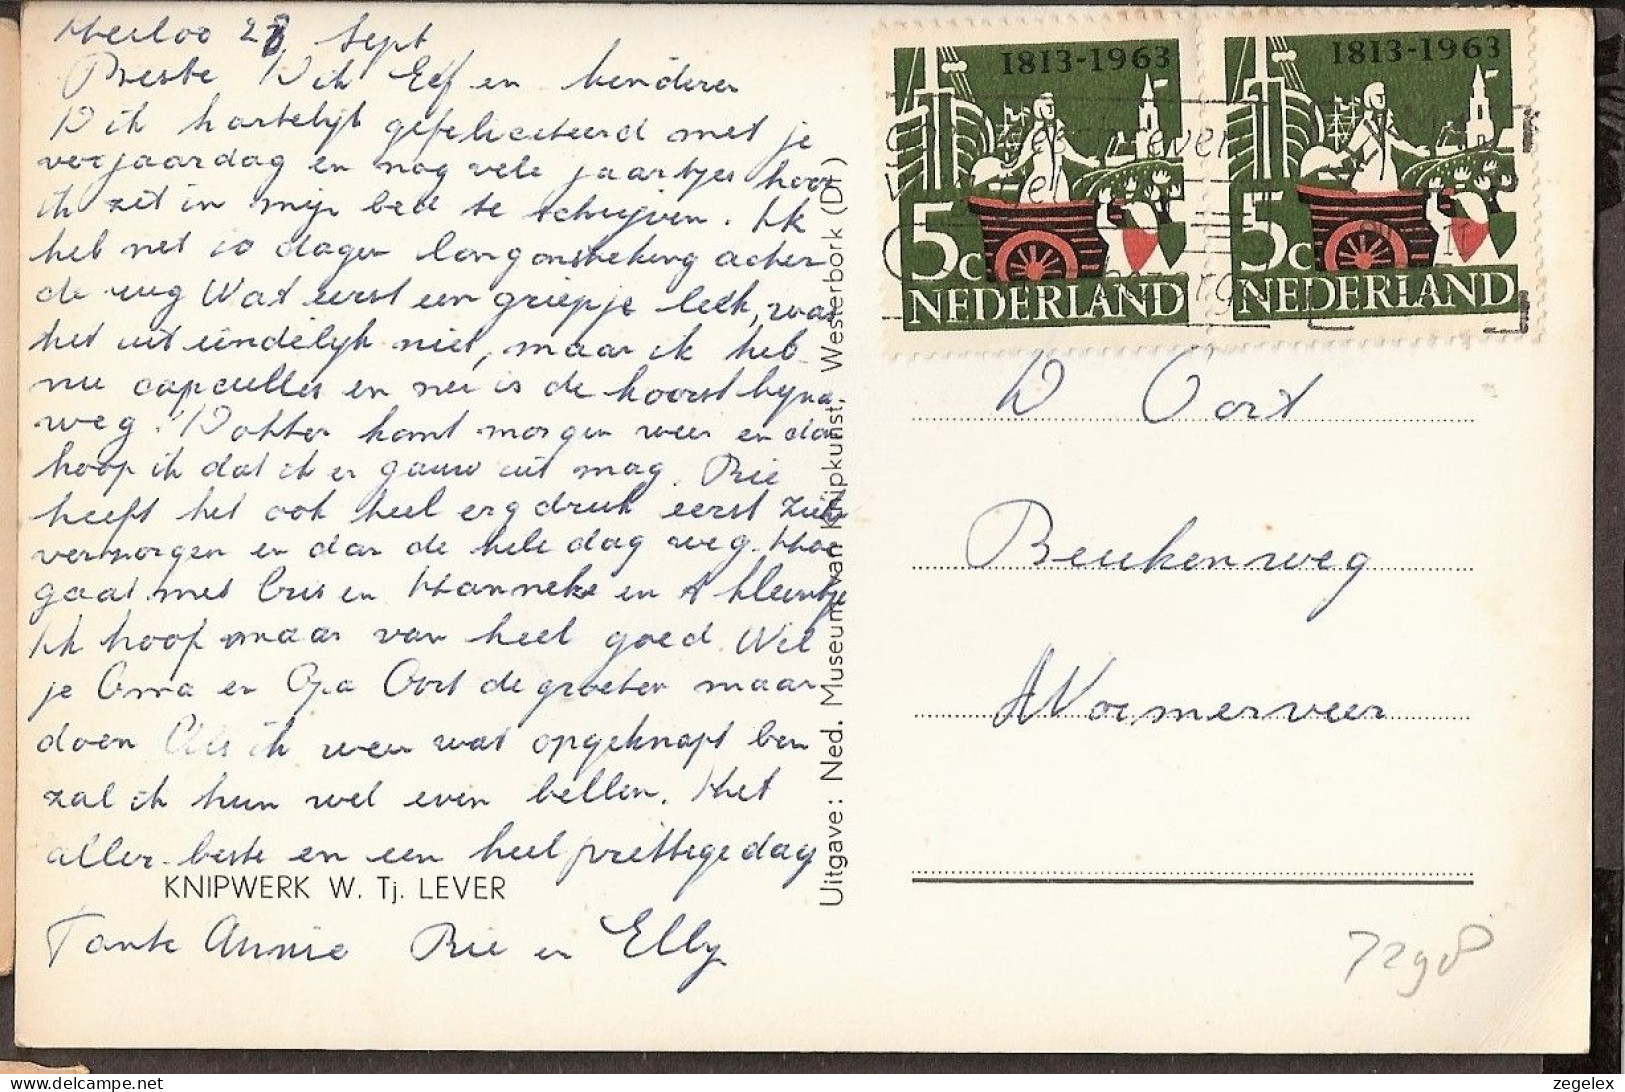 Heiloo 28 Sept
Beste Dik Eef en kinderen
Dik hartelijk gefeliciteerd met je
verjaardag en nog vele jaartjes hoor
ik zit in mijn bed te schrijven. Ik
heb net 10 dagen longontsteking achter
de rug Wat eerst een griepje leek, was
het uiteindelijk niet, maar ik heb
nu capculles en nu is de koorst bijna
weg. Dokter komt morgen weer en dan
hoop ik dat ik er gauw uit mag. Rie
heeft het ook heel erg druk eerst
vermorgen en dan de hele dag weg. Hoe
gaat met Cris en Hanneke en 't kleintje
Ik hoop maar van heel goed. Wil
je Oma en Opa Oort de groeten maar
doen Als ik weer wat opgeknapt ben
zal ik hun wel even bellen. Het
aller beste en een heel prettege dag
KNIPWERK W. Tj. LEVER
Tante Annie Rie en Elly
Uitgave: Ned. Museum van Knipkunst. Westerbork (Dr)
1813-1963
5c
NEDERLAND
1813-1963
5c
NEDERLAND
D Oort
Beukenweg
Wormerveer
7298
zegelex